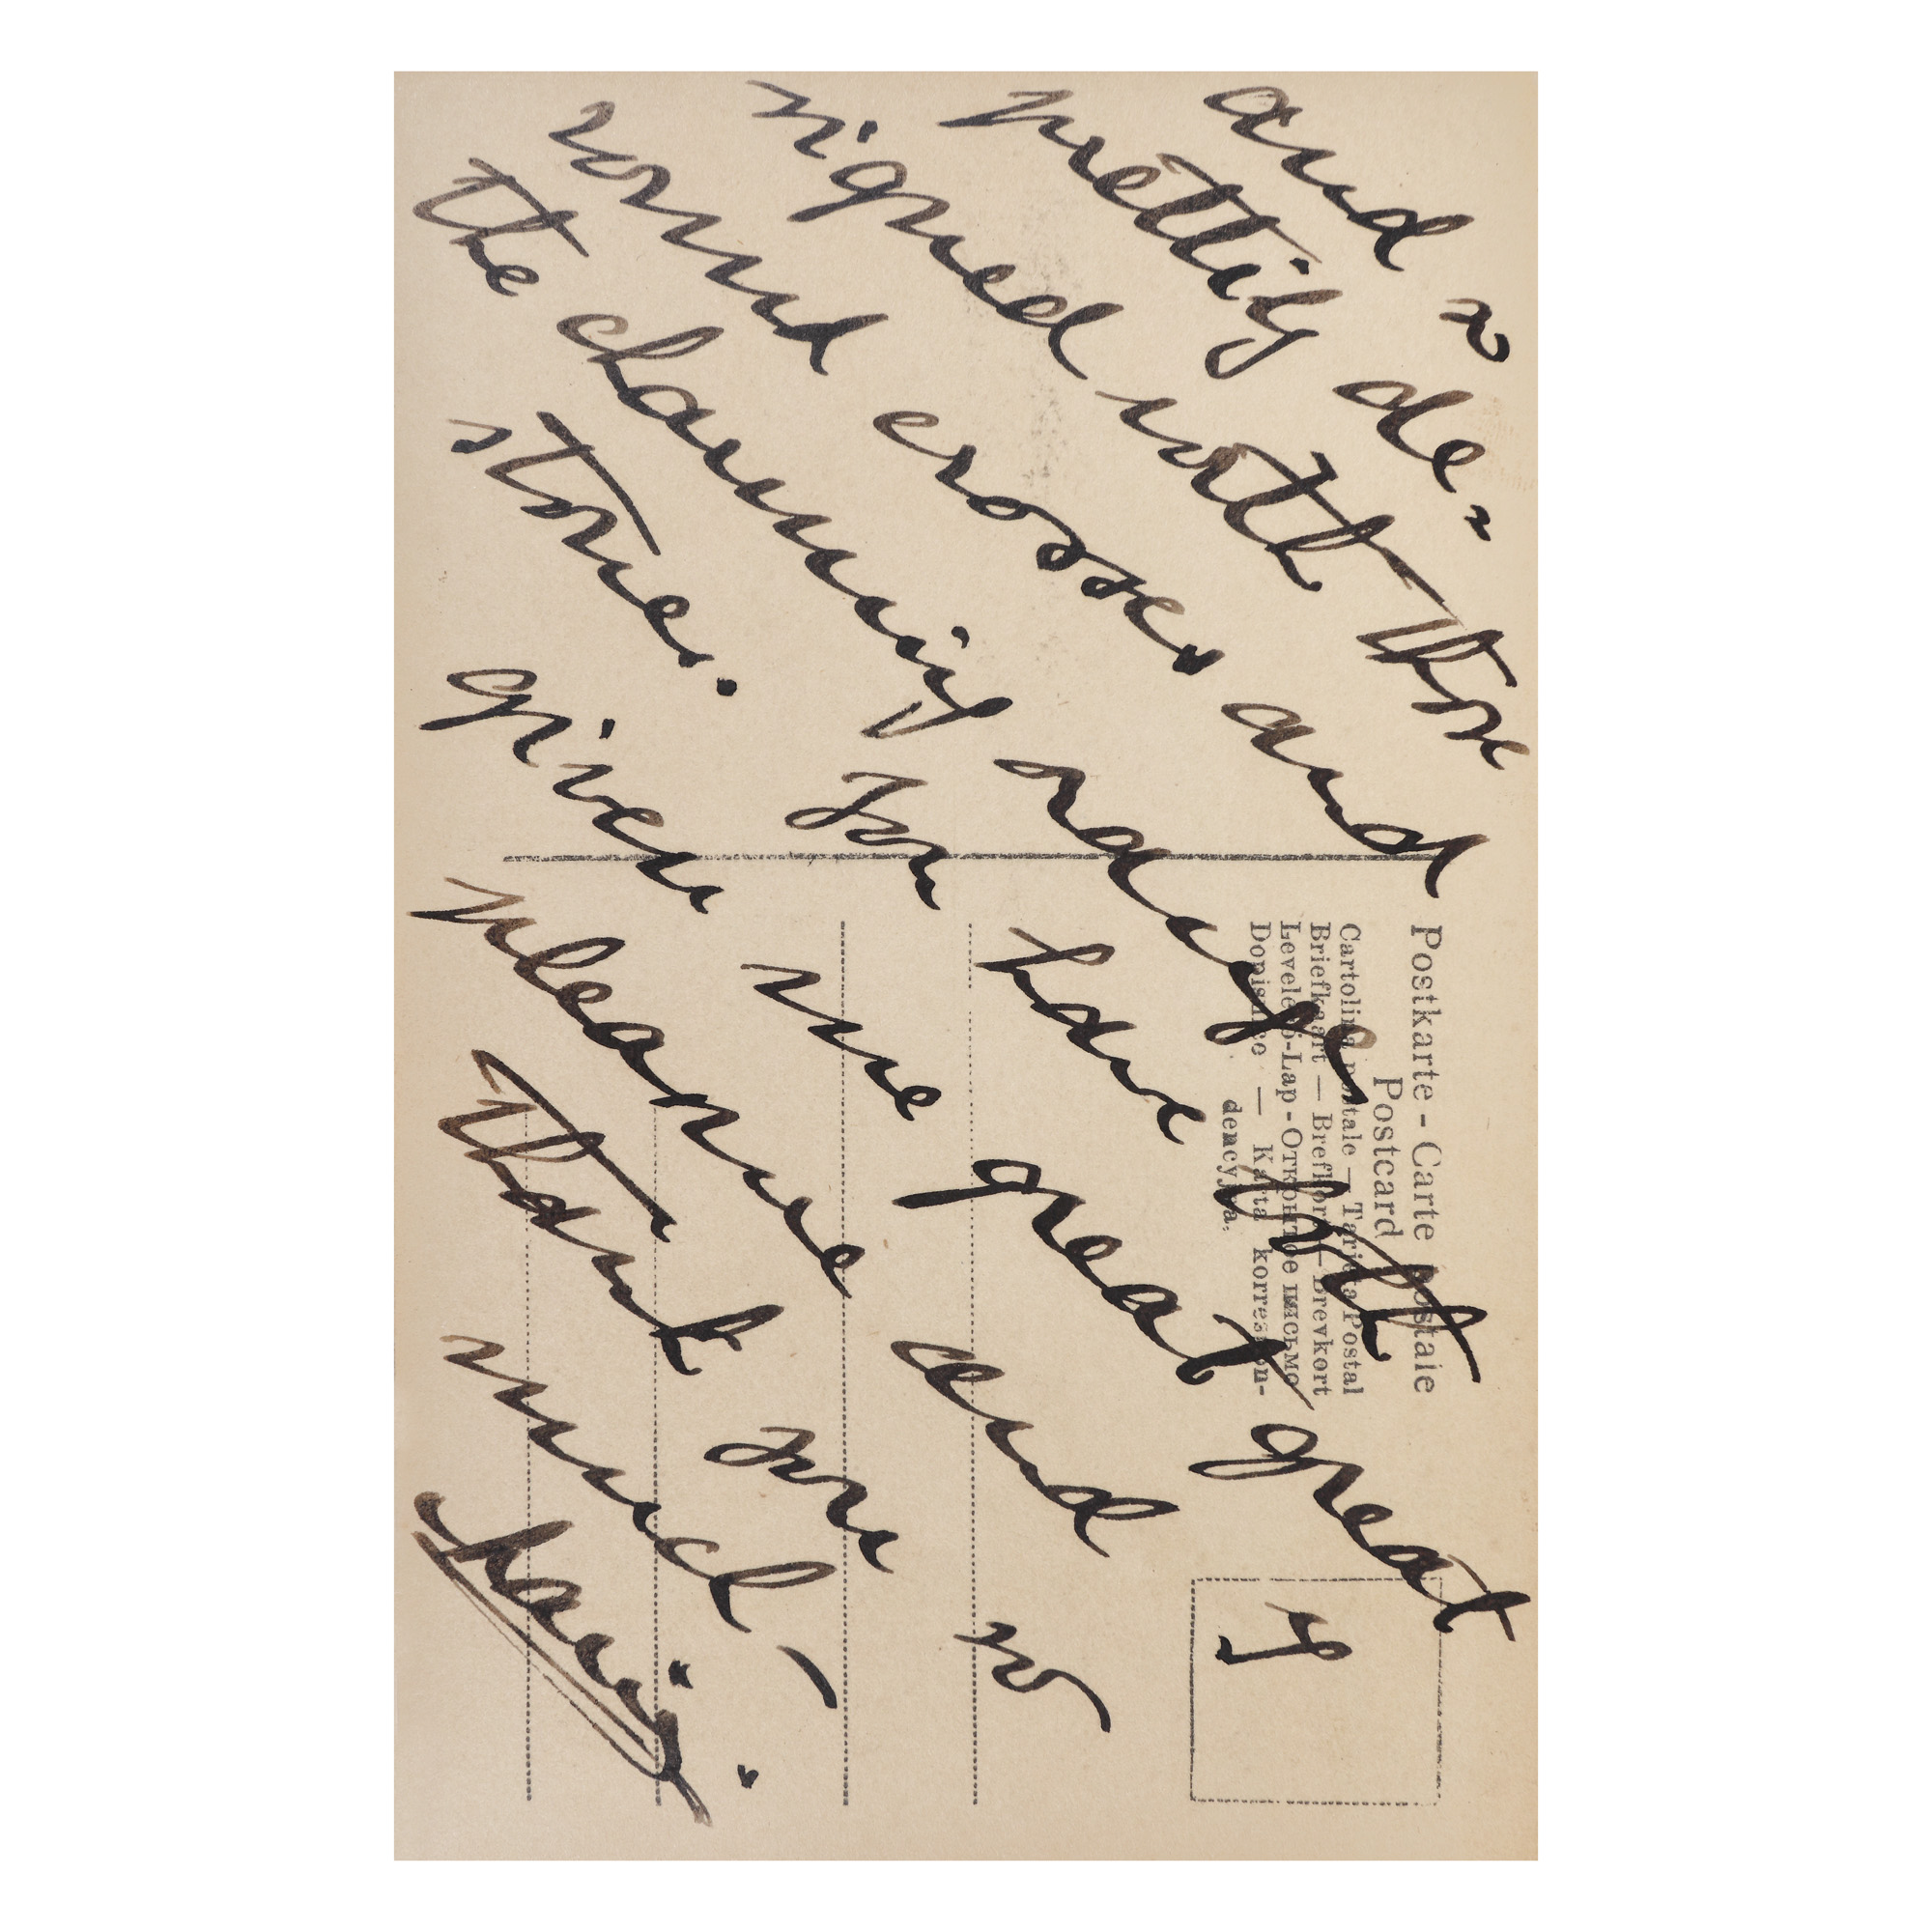 and so
prettily de=
signed with those
round crosses and
the charming orange
stone. You have both
given me great great
pleasure and I
thank you so
much, -.
Postkarte - Carte postale
Postcard
Cartolina postale — Tarjeta Postal
Briefkaart — Brefkort — Brevkort
Levelező-Lap - Открытое письмо
Dopisnice — Karta korrespon-
dencyjna.